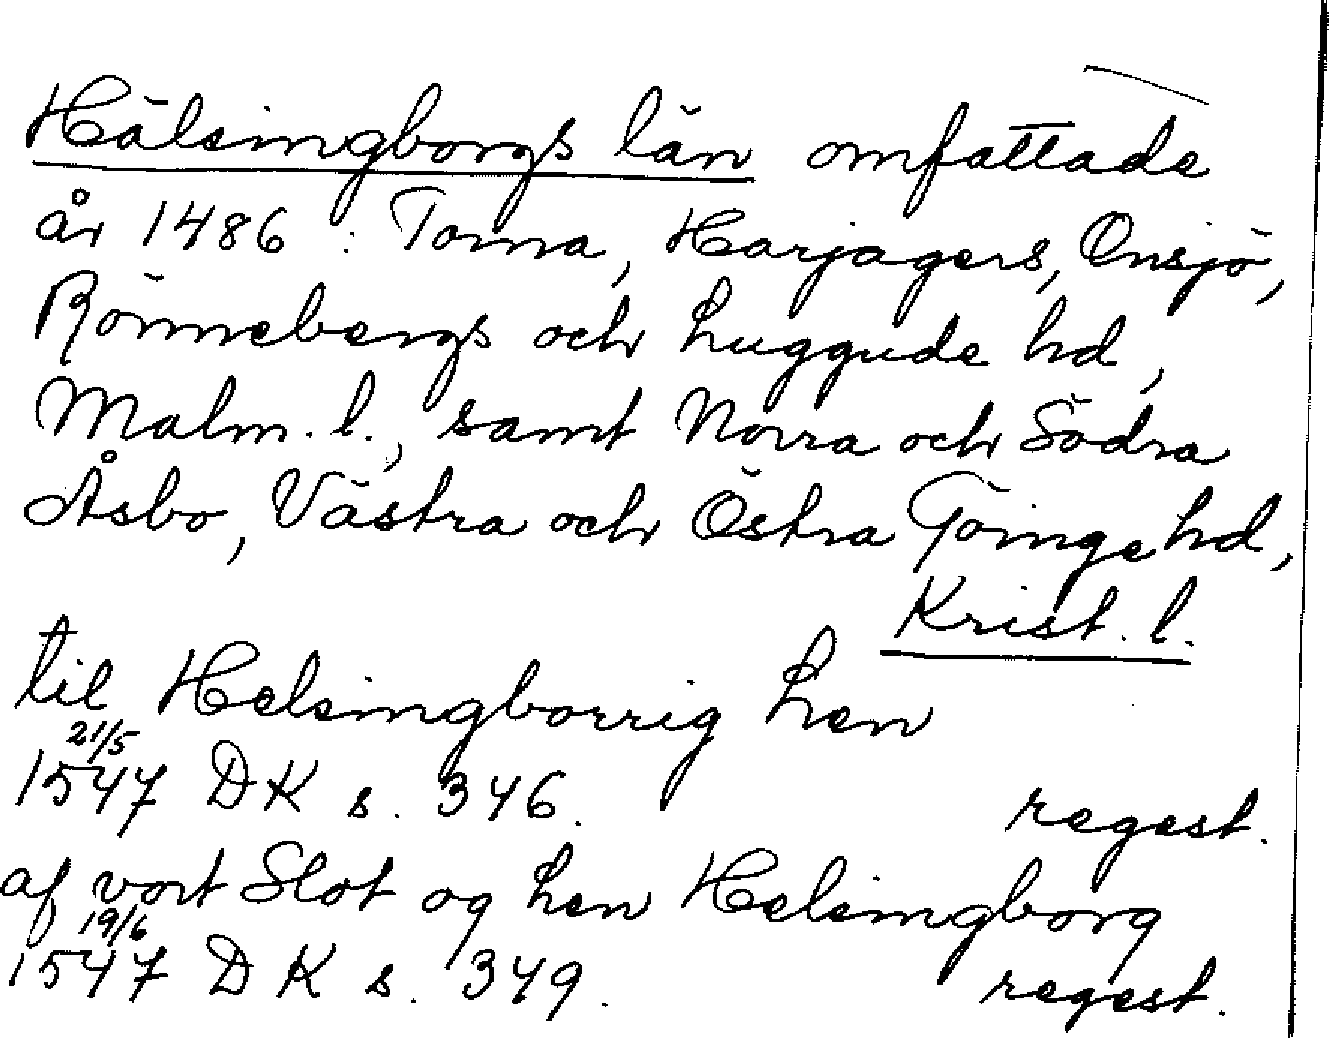 Hälsingborgs län omfattade
år 1486 : Torna, Harjagers, Onsjö,
Rönnebergs och Luggude hd,
Malm. l., samt Norra och Södra
Åsbo, Västra och Östra Göinge hd,
Krist. l.
til Helsingborrig Len
21/5
1547 DK s. 346. regest.
af vort Slot og Len Helsingborg
19/6
1547 DK s. 349. regest.